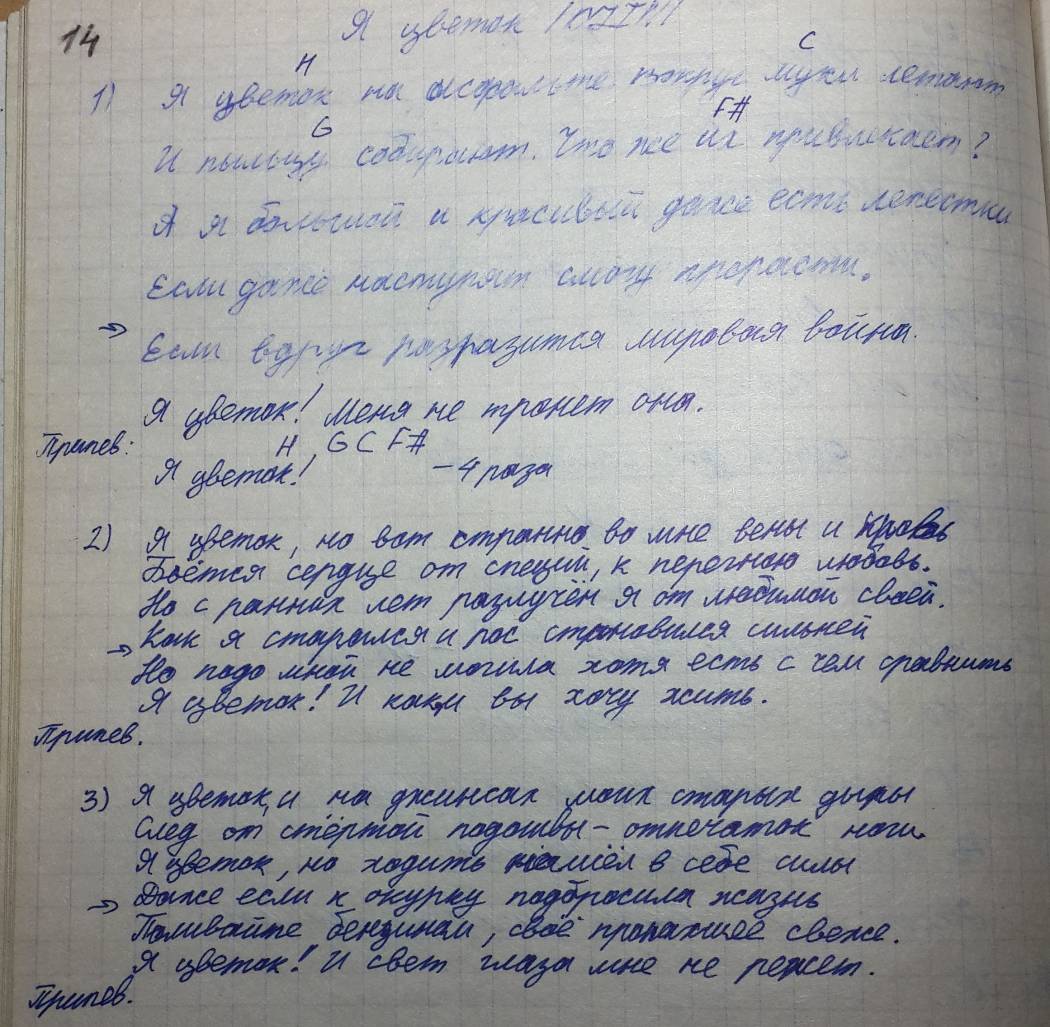 14
Я цветок
H C
1) Я цветок на асфальте вокруг мухи летают
G F#
И пыльцу собирают. Что же их привлекает?
А я большой и красивый даже есть лепестки
Если даже наступят смогу прорасти.
→ Если вдруг разразится мировая война.
Я цветок! Меня не тронет она.
Припев: H G C F#
Я цветок! – 4 раза
2) Я цветок, но вот странно во мне вены и кровь
Бьётся сердце от специй, к перегною любовь.
Но с ранних лет разлучён я от любимой своей.
→ Как я старался и рос становился сильней
Но подо мной не могила хотя есть с чем сравнить
Я цветок! И как и вы хочу жить.
Припев.
3) Я цветок, и на джинсах моих старых дыры
След от стёртой подошвы – отпечаток ноги.
Я цветок, но ходить нашёл в себе силы
→ Даже если к окурку подбросила жизнь
Поливайте бензином, своё пропахшее свеже.
Я цветок! И свет глаза мне не режет.
Припев.